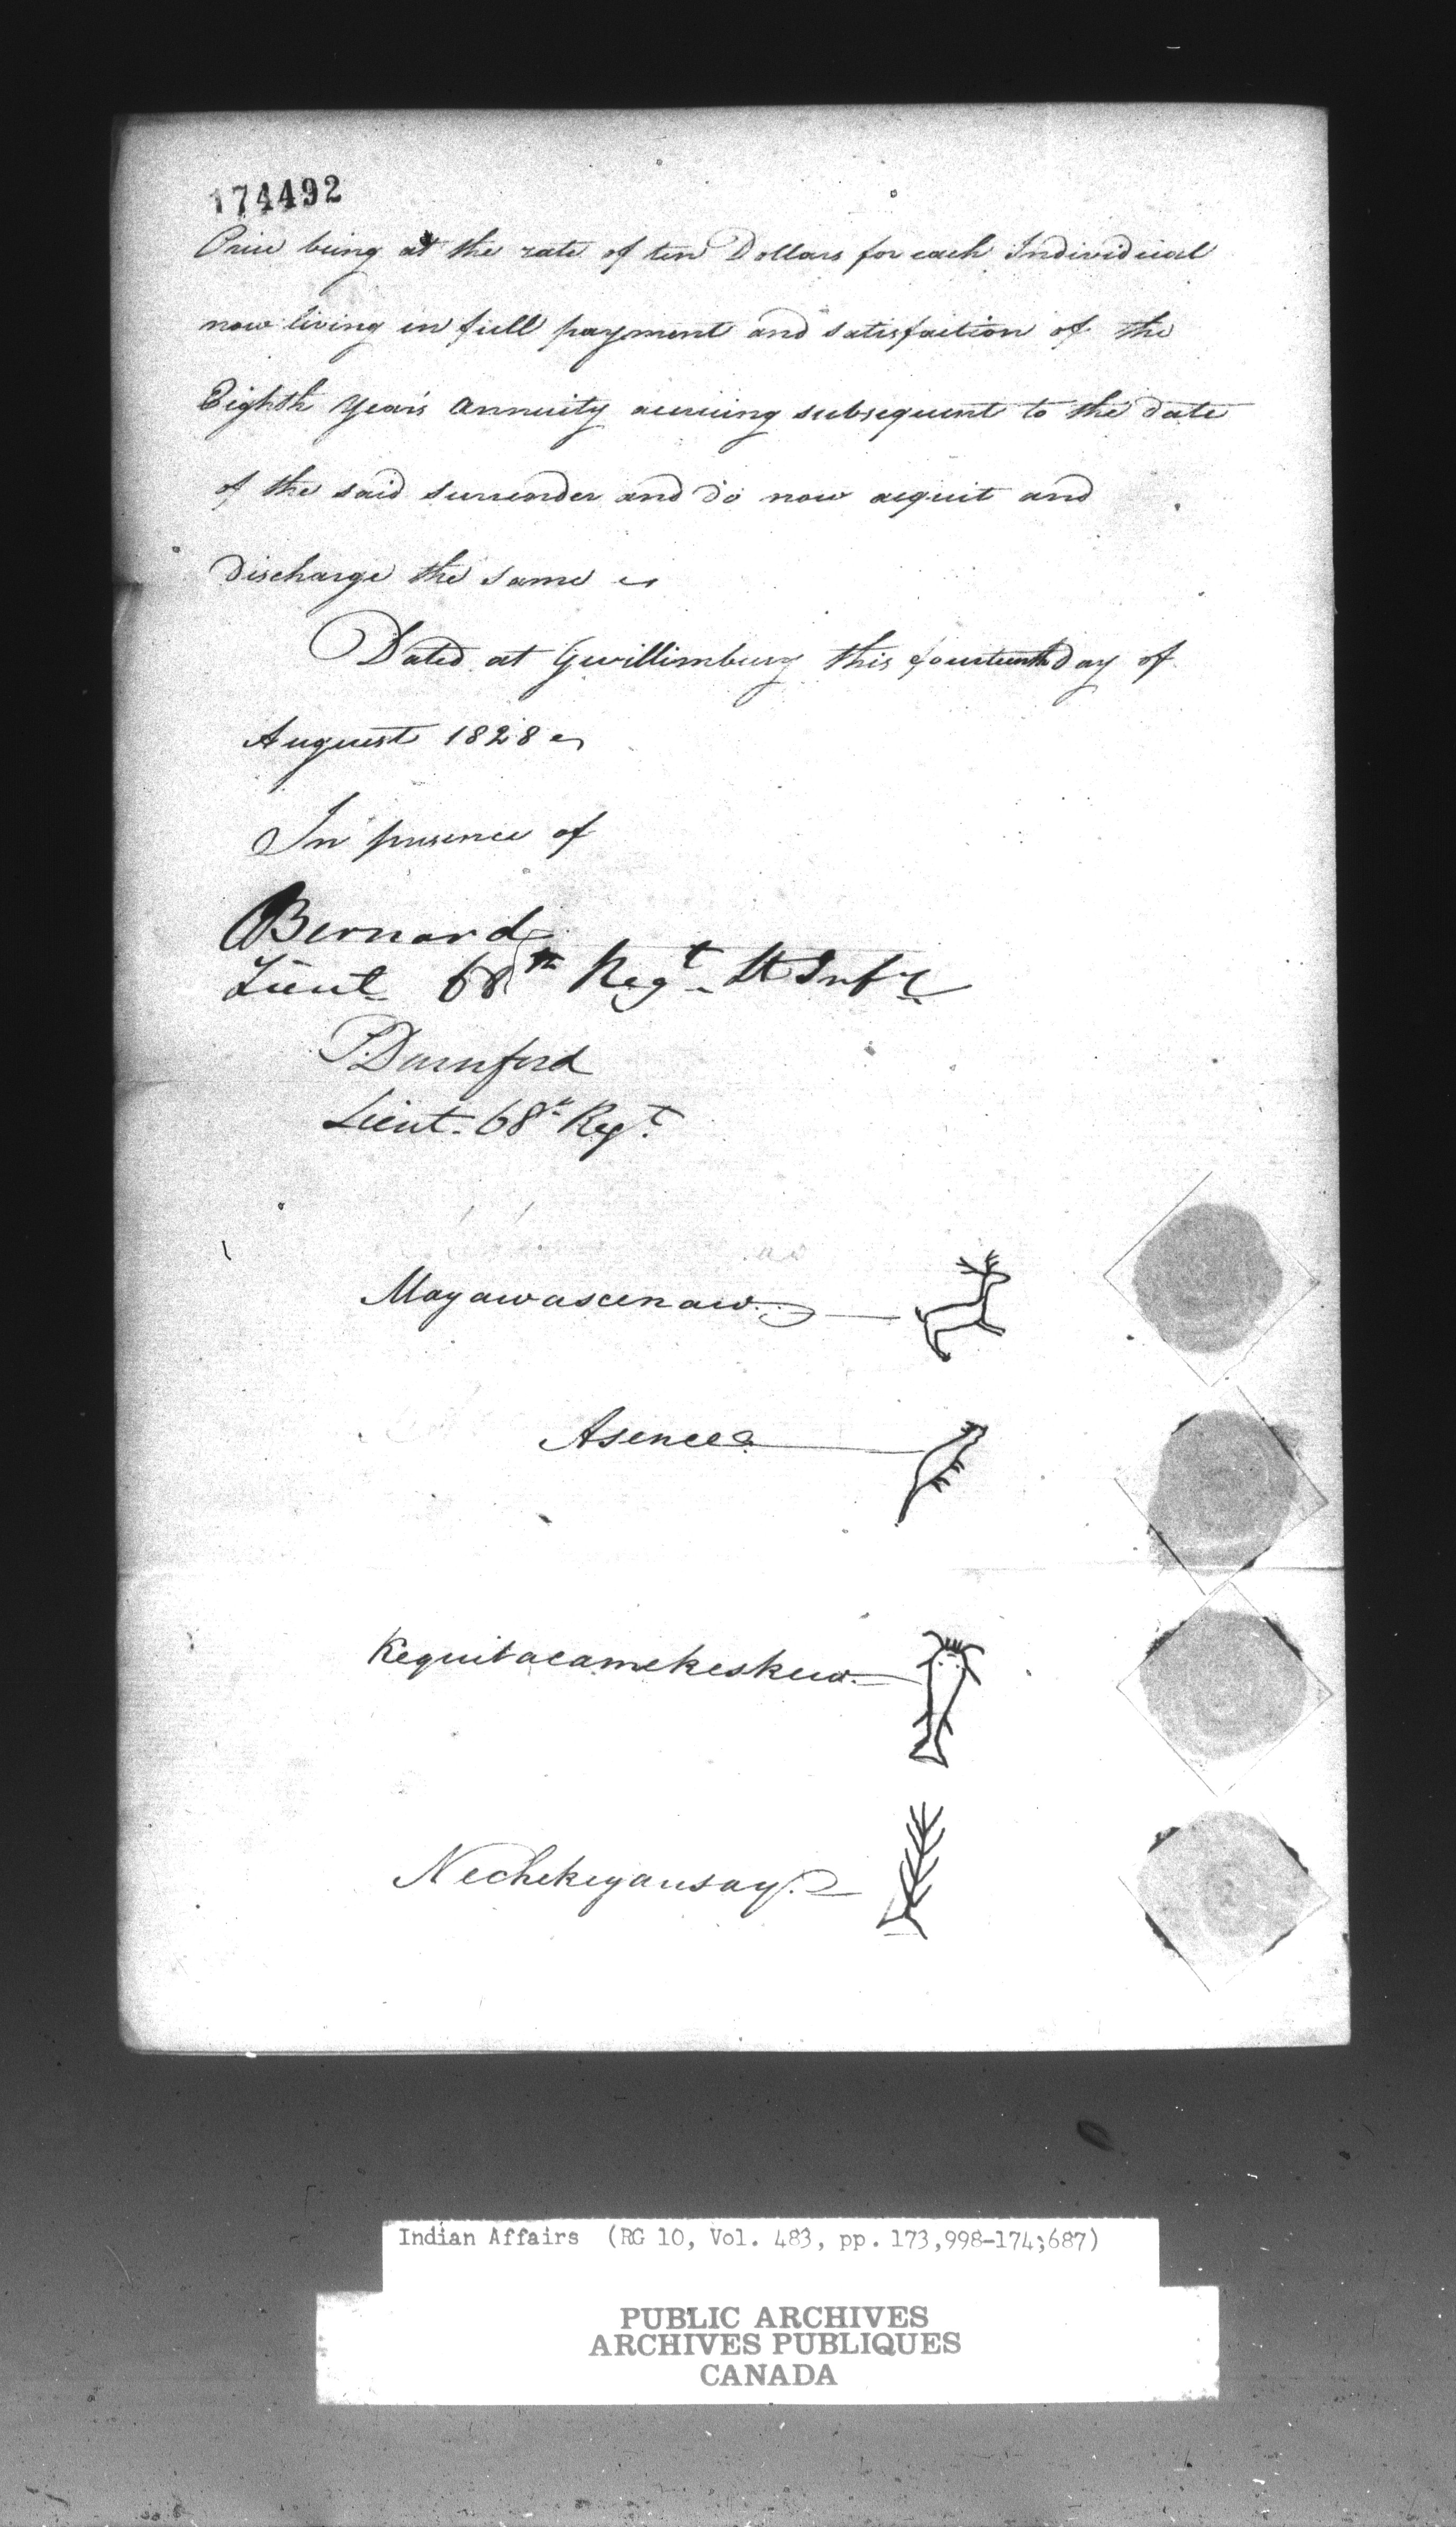 174492
Price being at the rate of ten Dollars for each Individual
now living in full payment and satisfaction of the
Eighth Year's Annuity accruing subsequent to the date
of the said surrender and do now acquit and
discharge the same
Dated at Gwillimbury this fourteenth day of
August 1828
In presence of
Bernard
Lieut 68th Regt Lt Infy
P. Durnford
Lieut. 68th Regt
Mayawascenaw
Asence
Kequitacamekeskew
Nechekeyausay
Indian Affairs (RG 10, Vol. 483, pp. 173,998-174;687)
PUBLIC ARCHIVES
ARCHIVES PUBLIQUES
CANADA